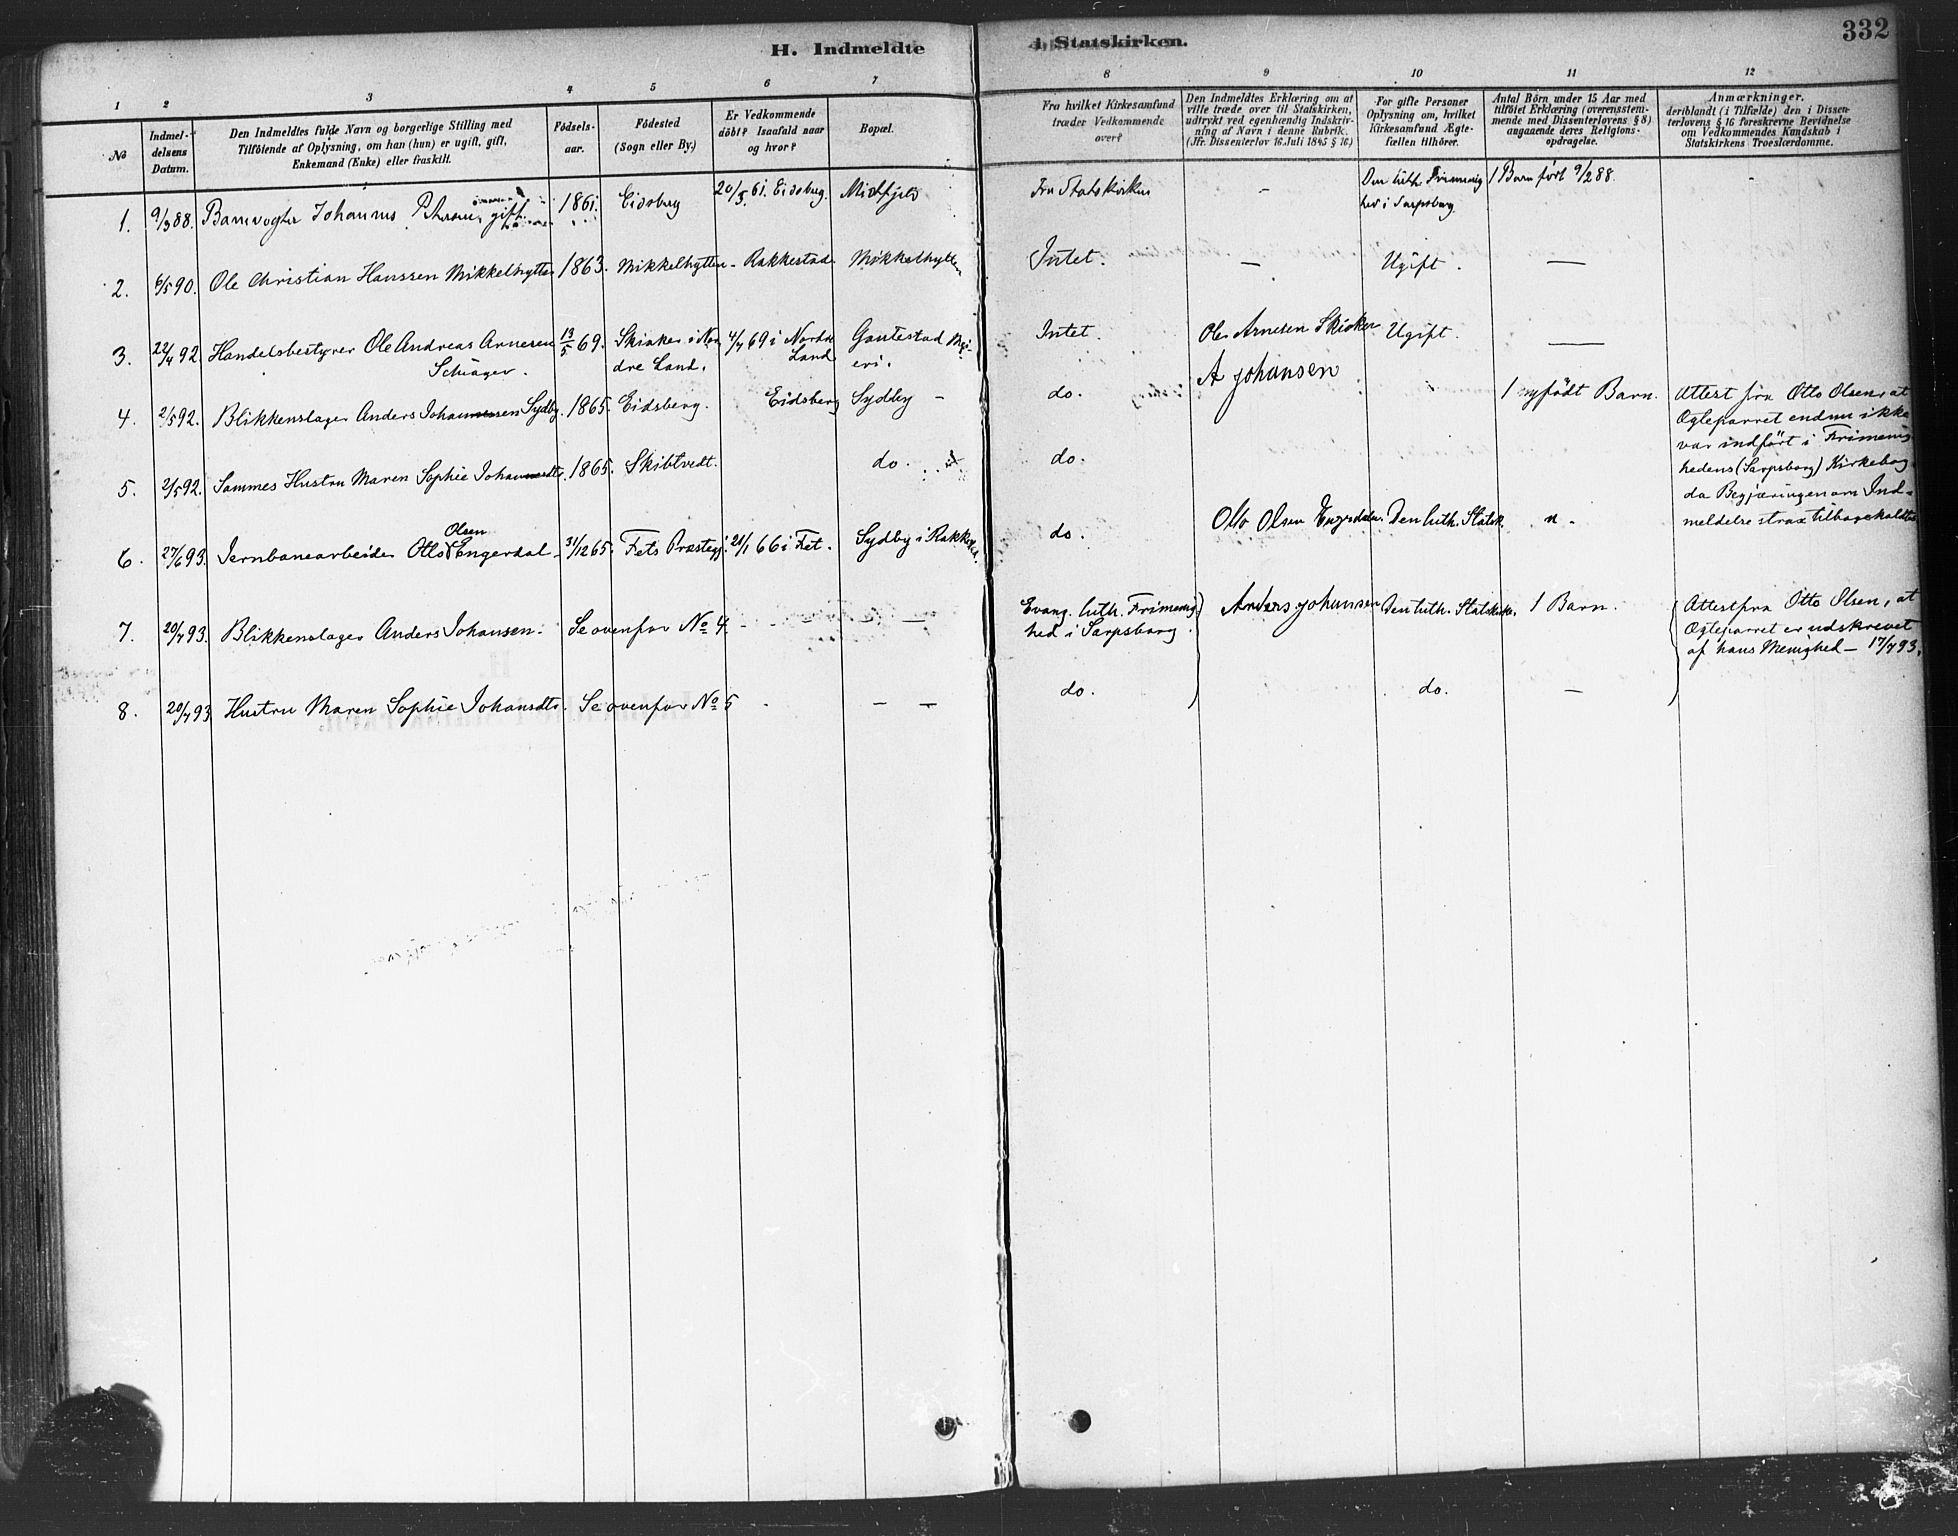 332
H. Indmeldte i Statskirken.
1 2 3 4 5 6 7 8 9 10 11 12
№
Indmel-
delsens
Datum.
Den Indmeldtes fulde Navn og borgerlige Stilling med
Tilföiende af Oplysning, om han (hun) er ugift, gift,
Enkemand (Enke) eller fraskilt.
Födsels-
aar.
Födested
(Sogn eller By.)
Er Vedkommende
döbt? Isaafald naar
og hvor?
Bopæl.
Fra hvilket Kirkesamfund
træder Vedkommende
over?
Den Indmeldtes Erklæring om at
ville træde over til Statskirken,
udtrykt ved egenhændig Indskriv-
ning af Navn i denne Rubrik.
(Jfr. Dissenterlov 16. Juli 1845 § 16)
For gifte Personer
Oplysning om, hvilket
Kirkesamfund Ægte-
fællen tilhörer.
Antal Börn under 15 Aar med
tilföiet Erklæring (overensstem-
mende med Dissenterlovens § 8)
angaaende deres Religions-
opdragelse.
Anmærkninger.
deriblandt (i Tilfælde) den i Dissen-
terlovens § 16 foreskrevne Bevidnelse
om Vedkommendes Kundskab i
Statskirkens Troeslærdomme.
1. 9/3 88. Banevogter Johannes gift. 1861. Eidsberg 20/5 61. Eidsberg. Midtfjeld Fra Statskirken — Den luth. Frimenig
hed i Sarpsborg. 1 Barn født 9/2 88 -
2. 6/5 90. Ole Christian Hanssen Mikkelhytten 1863. Mikkelhytten - Rakkestad. Mikkelhytten Intet. — Ugift. —
3. 22/4 92. Handelsbestyrer Ole Andreas Arnesen 13/5 69. Skiaker i Nor 4/7 69 i Nordre Gautestad Mei- Intet. Ole Arnesen Skiaker Ugift. —
Schiager. dre Land. Land eri.
4. 2/5 92. Blikkenslager Anders Johannessen Sydby. 1865. Eidsberg. Eidsberg Sydby - do. A Johansen 1 nyfödt Barn. Attest fra Otto Olsen, at
Ægteparret endnu ikke
var indfört i Frimenig-
hedens (Sarpsborg) Kirkebog
da Begjæringen om Ind-
meldelse strax tilbagekaldtes
5. 2/5 92. Sammes Hustru Maren Sophie Johannesdtr. 1865. Skibtvedt. do. do.
6. 27/6 93. Jernbanearbeider Otto Olsen Engerdal - 31/12 65. Fets Præstegj. 21/1 66 i Fet. Sydby i Rakkestad. do. Otto Olsen Engerdalen. Den luth. Statsk. n.
7. 20/7 93. Blikkenslager Anders Johansen. Se ovenfor No 4. - - Evang. luth. Frimenig
hed i Sarpsborg. Anders Johansen Den luth. Statskirke. 1 Barn. Attest fra Otto Olsen, at
Ægteparret er udskrevet
af hans Menighed — 17/7 93.
8. 20/7 93 Hustru Maren Sophie Johansdtr. Se ovenfor No 5 - — — do. do. —